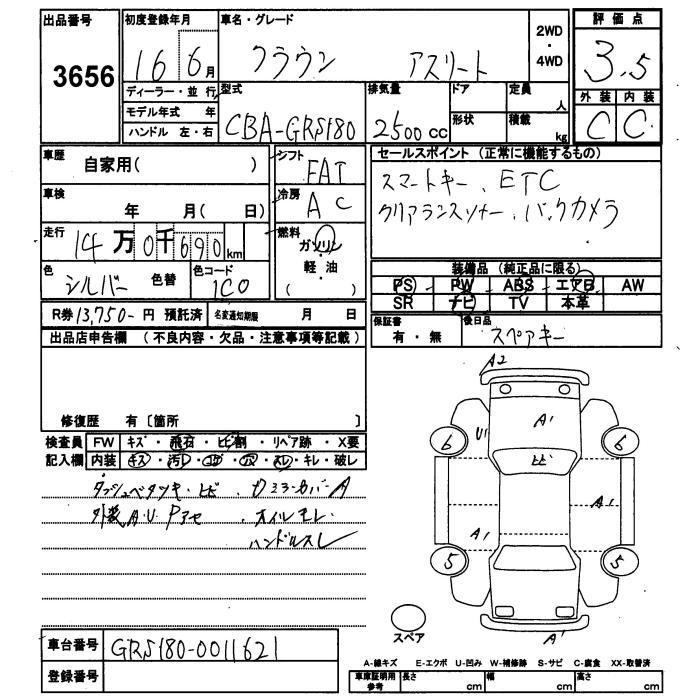 出品番号 初度登録年月 車名・グレード 2WD・4WD 評価点
3656 16 6月 クラウン アスリート 3.5
ディーラー・並行 型式 排気量 ドア 定員 人 外装 内装
モデル年式 年 CBA-GRS180 2500cc 形状 積載 kg C C
ハンドル 左・右
車歴 自家用( ) シフト FAT セールスポイント (正常に機能するもの)
車検 年 月( 日) 冷房 AC スマートキー、ETC
クリアランスソナー、バックカメラ
走行 14万0千690km 燃料 ガソリン
軽・油
( )
色 シルバー 色替 色コード 1C0 装備品 (純正品に限る)
PS PW ABS エアB AW
SR ナビ TV 本革
R券 13,750- 円 預託済 名変通知期限 月 日 保証書 有・無 後日品 スペアキー
出品店申告欄 (不良内容・欠品・注意事項等記載)
修復歴 有〔箇所 〕
検査員 FW キズ・飛石・ヒビ割・リペア跡・X要
記入欄 内装 キズ・汚レ・コゲ・穴・スレ・キレ・破レ
ダッシュベタツキ・ヒビ、ロミラーカバーA
外装A.U Pアセ、オイルモレ
ハンドルスレ
A2
A1
U1 6 ヒビ 6
A1
A1
5 5
A1
スペア
車台番号 GRS180-0011621
登録番号
A-線キズ E-エクボ U-凹み W-補修跡 S-サビ C-腐食 XX-取替済
車庫証明用参考 長さ cm 幅 cm 高さ cm